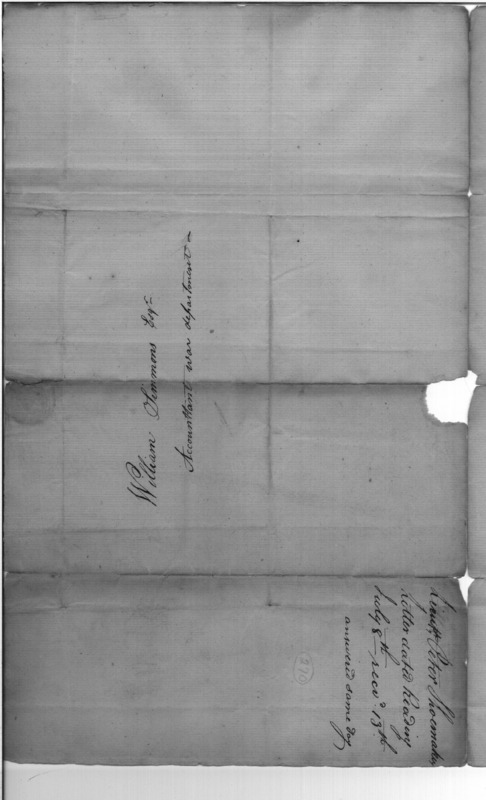 William Simmons Esqr
Accountant war department
Lieut Peter Shoemaker
Letter dated Reading
July 8th recd 13th
answerd same day